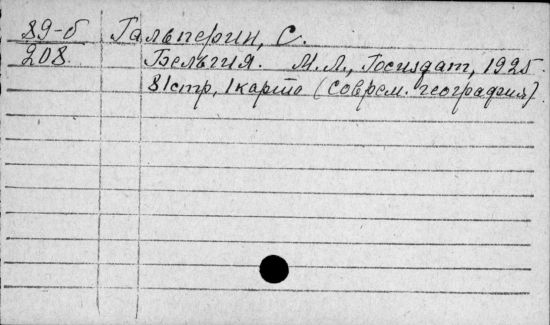 89-б Гальперин, С.
208. Бельгия. М.Л., Госиздат, 1925.
81стр, 1карта (соврем. география)